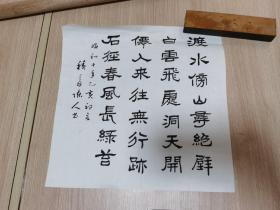 渡水傍山尋絶壁
白雲飛處洞天開
僊人來往無行跡
石徑春風長緑苔